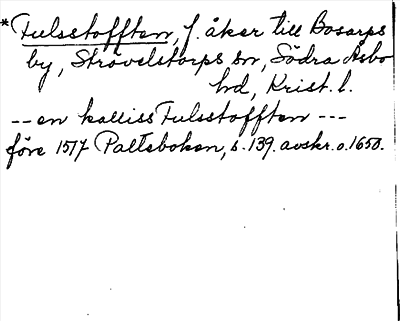 *Fulsstofften, f. åker till Bosarps
by, Strövelstorps sn, Södra Åsbo
hd, Krist. l.
-- en kalliss Fulsstofften ---
före 1517 Paltsboken, s. 139. avskr. o. 1650.